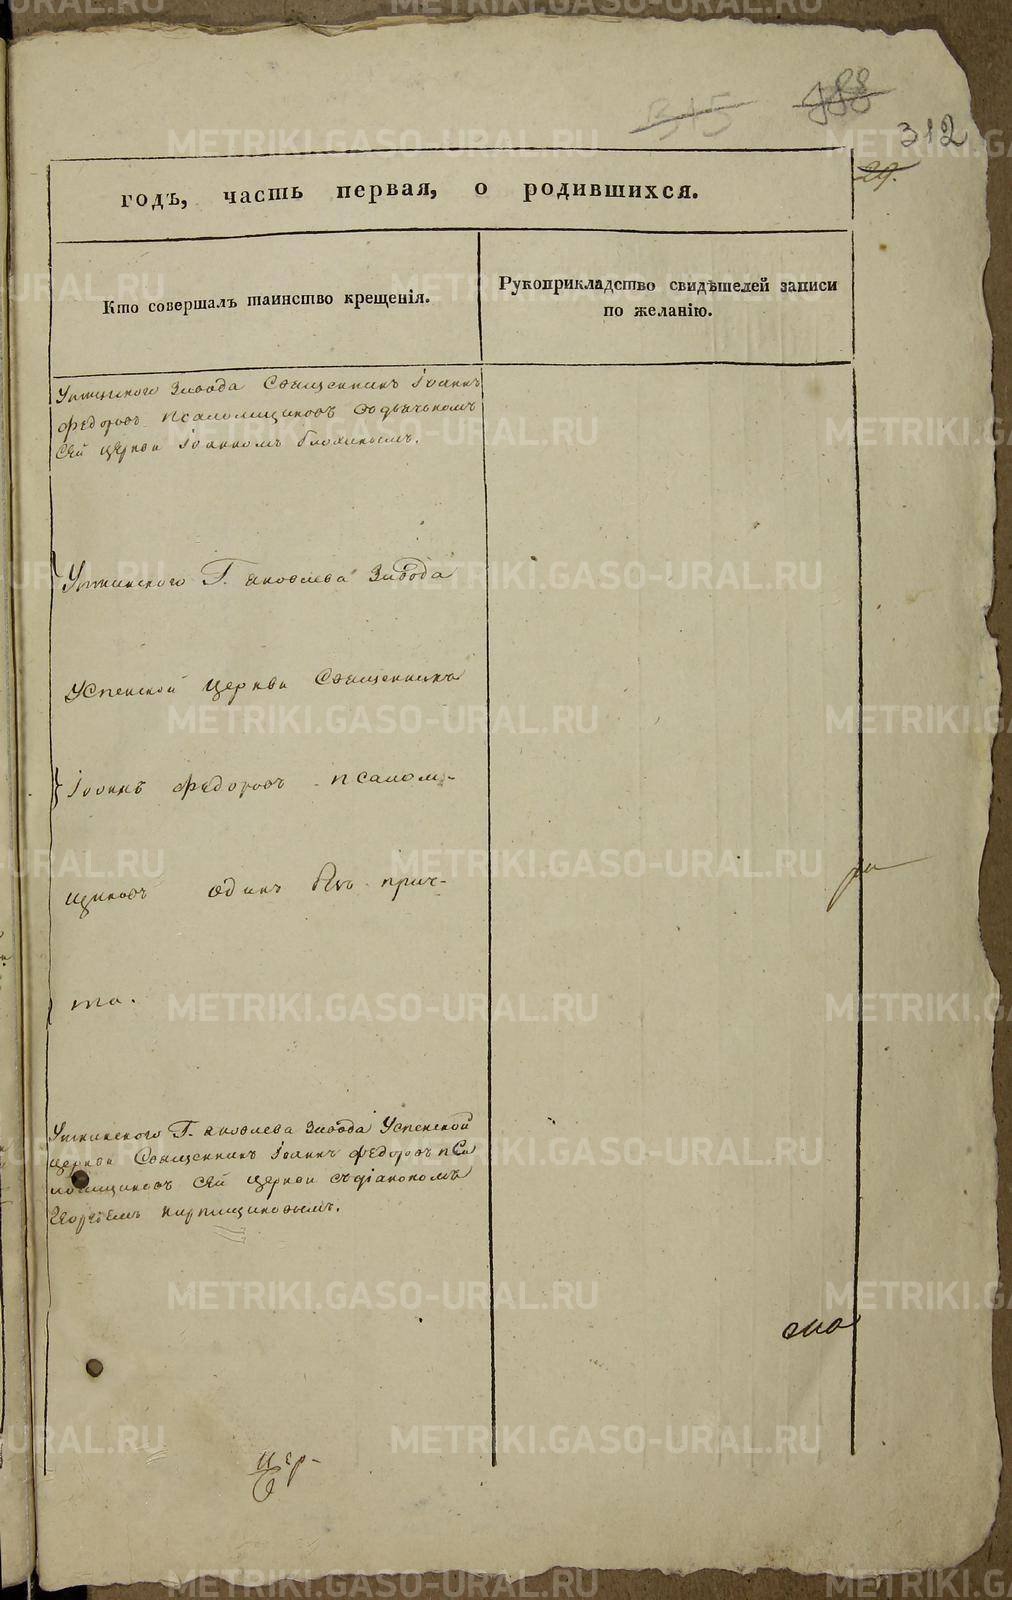 315
312
29.
годъ, часть первая, о родившихся.
Кто совершалъ таинство крещенія.
Рукоприкладство свидѣтелей записи
по желанію.
Уткинского Завода Священникъ Іоаннъ
Федоровъ Псаломщиковъ съ дьячькомъ
Сей церкви Іоанномъ
Уткинского Г. Яковлева Завода
Успенской Церкви Священникъ
Іоаннъ Федоровъ Псалом-
щиковъ один безъ прич-
та.
Уткинского Г. Яковлева Завода Успенской
Церкви Священникъ Іоаннъ Федоровъ Пса
ломщиковъ Сей Церкви съ діакономъ
Георгіемъ Кирпищиковымъ.
METRIKI.GASO-URAL.RU